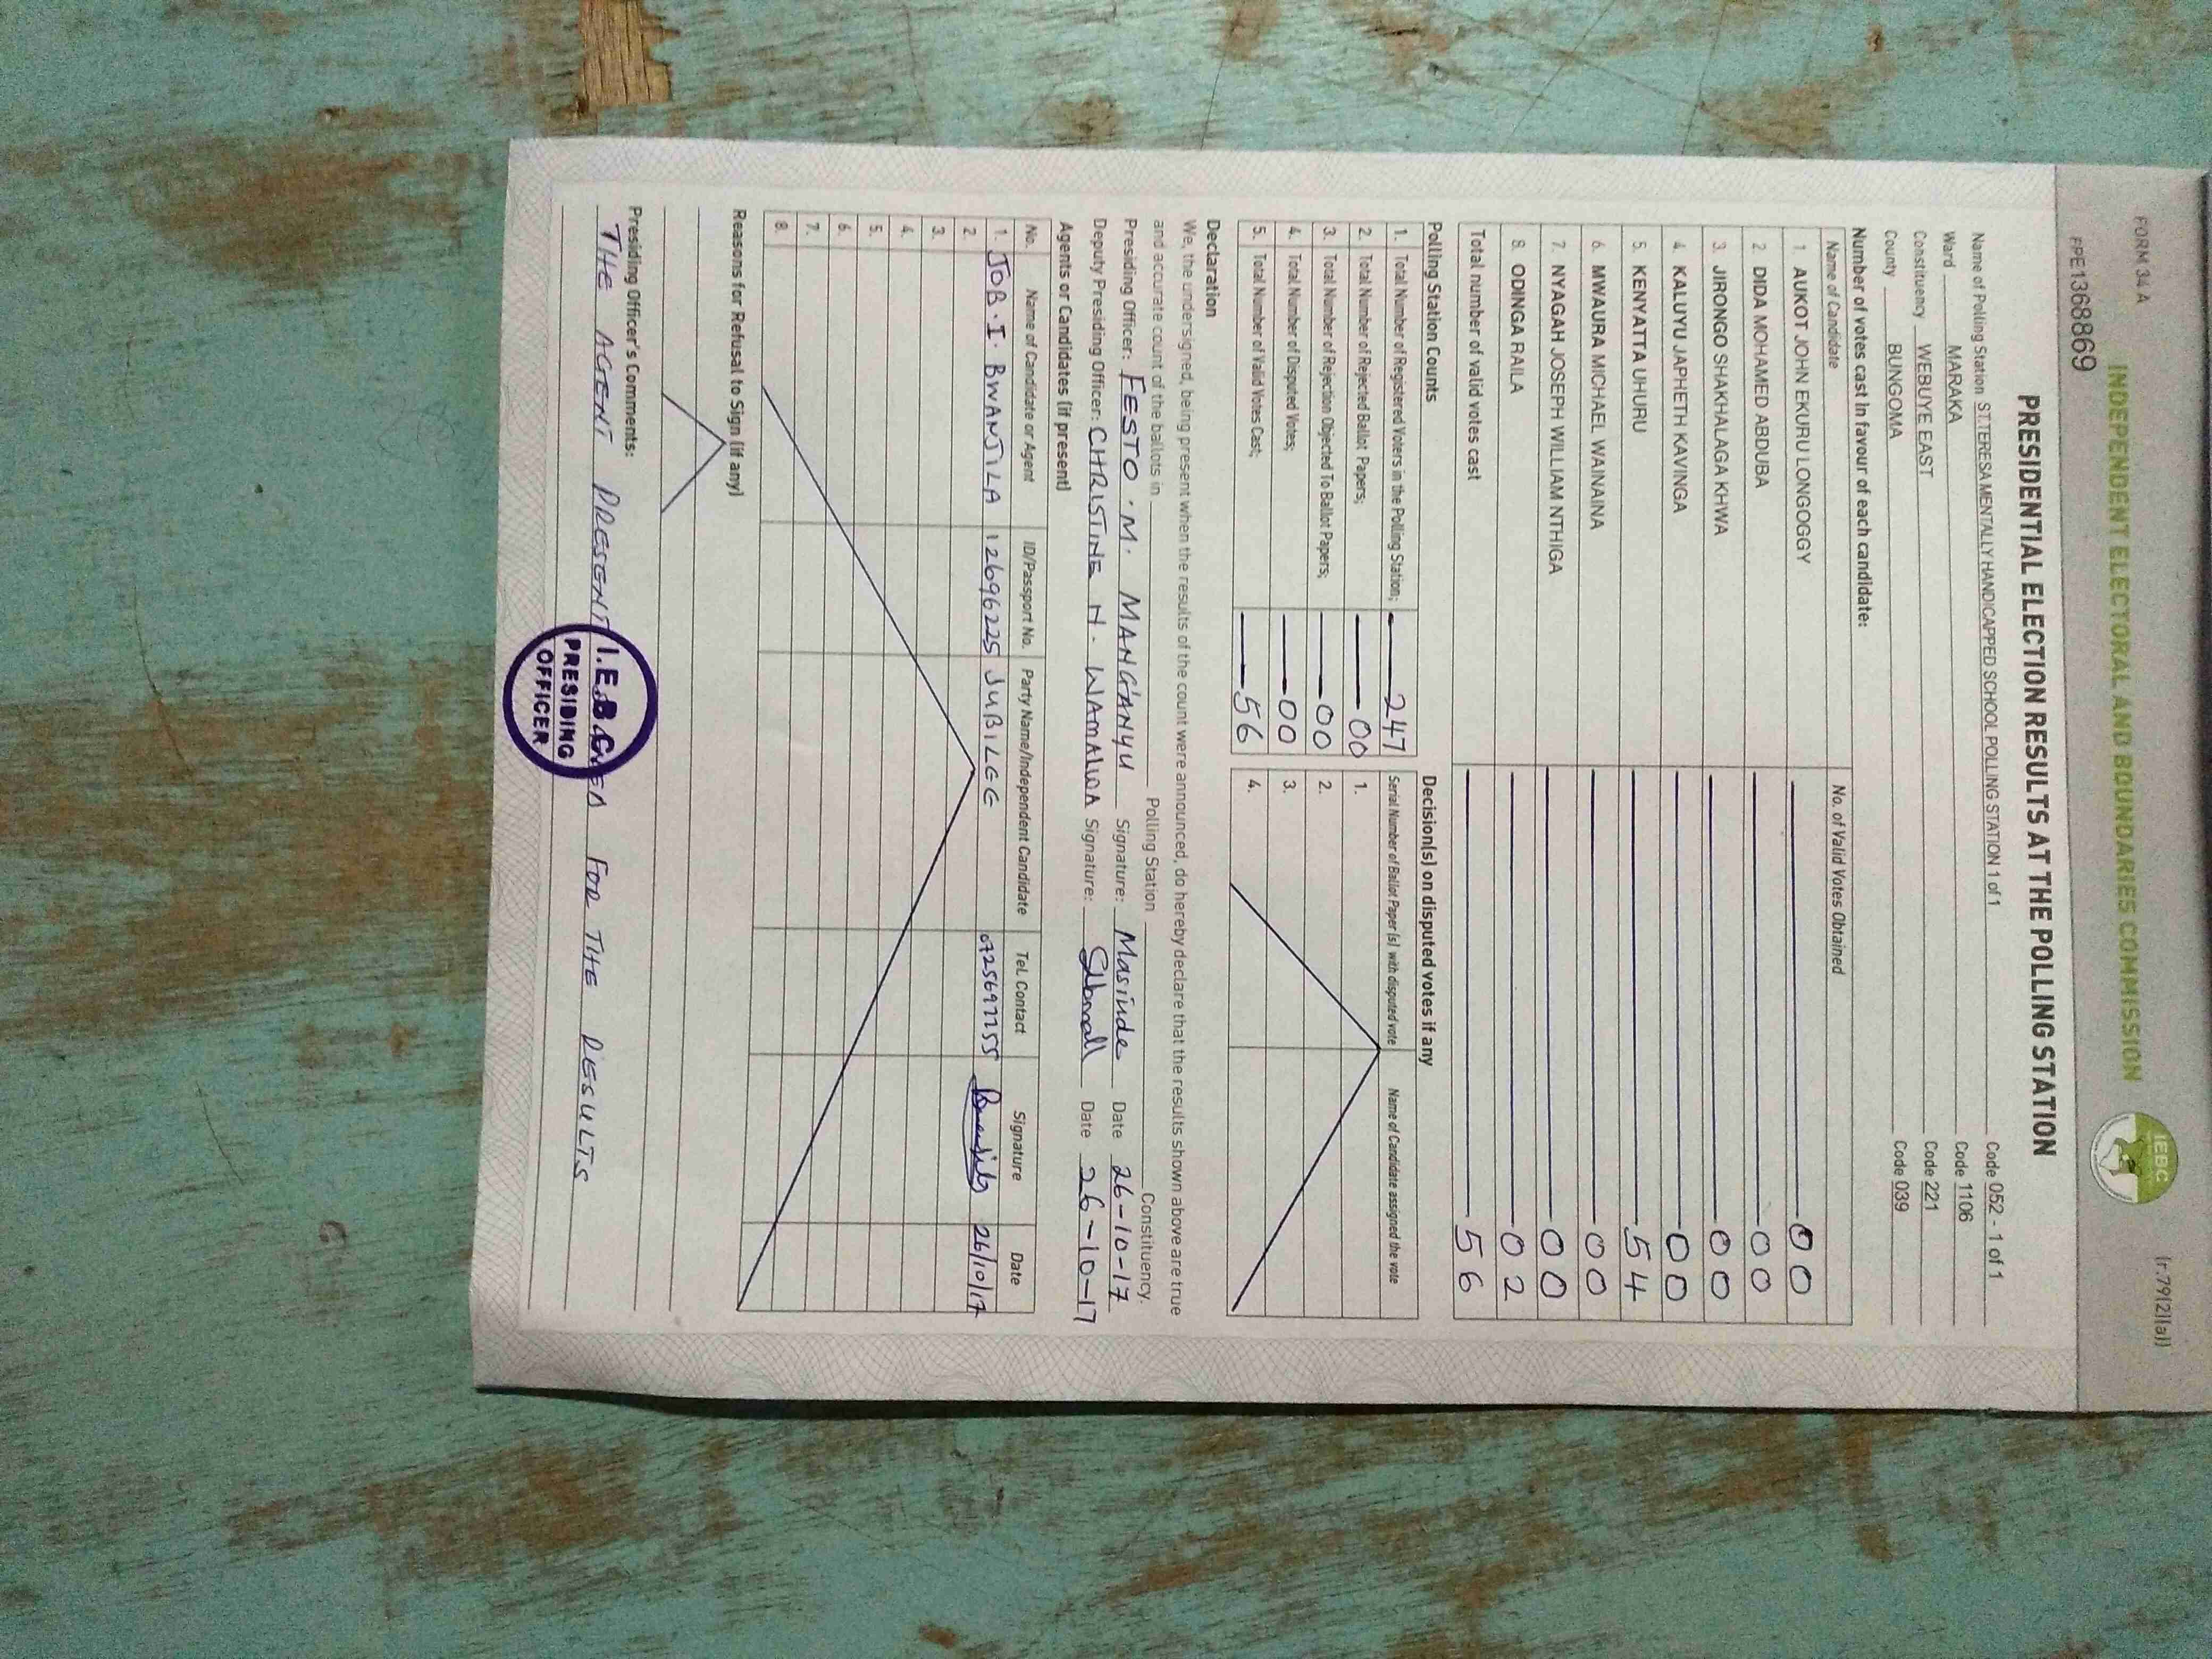 FORM 34 A
(r.79(2)(a))
INDEPENDENT ELECTORAL AND BOUNDARIES COMMISSION
IEBC
PPE1368869
PRESIDENTIAL ELECTION RESULTS AT THE POLLING STATION
Name of Polling Station ST.TERESA MENTALLY HANDICAPPED SCHOOL POLLING STATION 1 of 1 Code 052 - 1 of 1
Ward MARAKA Code 1106
Constituency WEBUYE EAST Code 221
County BUNGOMA Code 039
Number of votes cast in favour of each candidate:
Name of Candidate No. of Valid Votes Obtained
1. AUKOT JOHN EKURU LONGOGGY 00
2. DIDA MOHAMED ABDUBA 00
3. JIRONGO SHAKHALAGA KHWA 00
4. KALUYU JAPHETH KAVINGA 00
5. KENYATTA UHURU 54
6. MWAURA MICHAEL WAINAINA 00
7. NYAGAH JOSEPH WILLIAM NTHIGA 00
8. ODINGA RAILA 02
Total number of valid votes cast 56
Polling Station Counts Decision(s) on disputed votes if any
1. Total Number of Registered Voters in the Polling Station; 247 Serial Number of Ballot Paper (s) with disputed vote Name of Candidate assigned the vote
2. Total Number of Rejected Ballot Papers; 00 1.
3. Total Number of Rejection Objected To Ballot Papers; 00 2.
4. Total Number of Disputed Votes; 00 3.
5. Total Number of Valid Votes Cast; 56 4.
Declaration
We, the undersigned, being present when the results of the count were announced, do hereby declare that the results shown above are true
and accurate count of the ballots in Polling Station Constituency.
Presiding Officer: FESTO . M. MANG'ANYU Signature: Masinde Date 26-10-17
Deputy Presiding Officer: CHRISTINE N. WAMALWA Signature: Date 26-10-17
Agents or Candidates (if present)
No. Name of Candidate or Agent ID/Passport No. Party Name/Independent Candidate Tel. Contact Signature Date
1. JOB . I . BWANJILA 12696225 JUBILEE 0725697755 26/10/17
2.
3.
4.
5.
6.
7.
8.
Reasons for Refusal to Sign (if any)
Presiding Officer's Comments:
THE AGENT PRESENT FOR THE RESULTS
I.E.B.C
PRESIDING
OFFICER